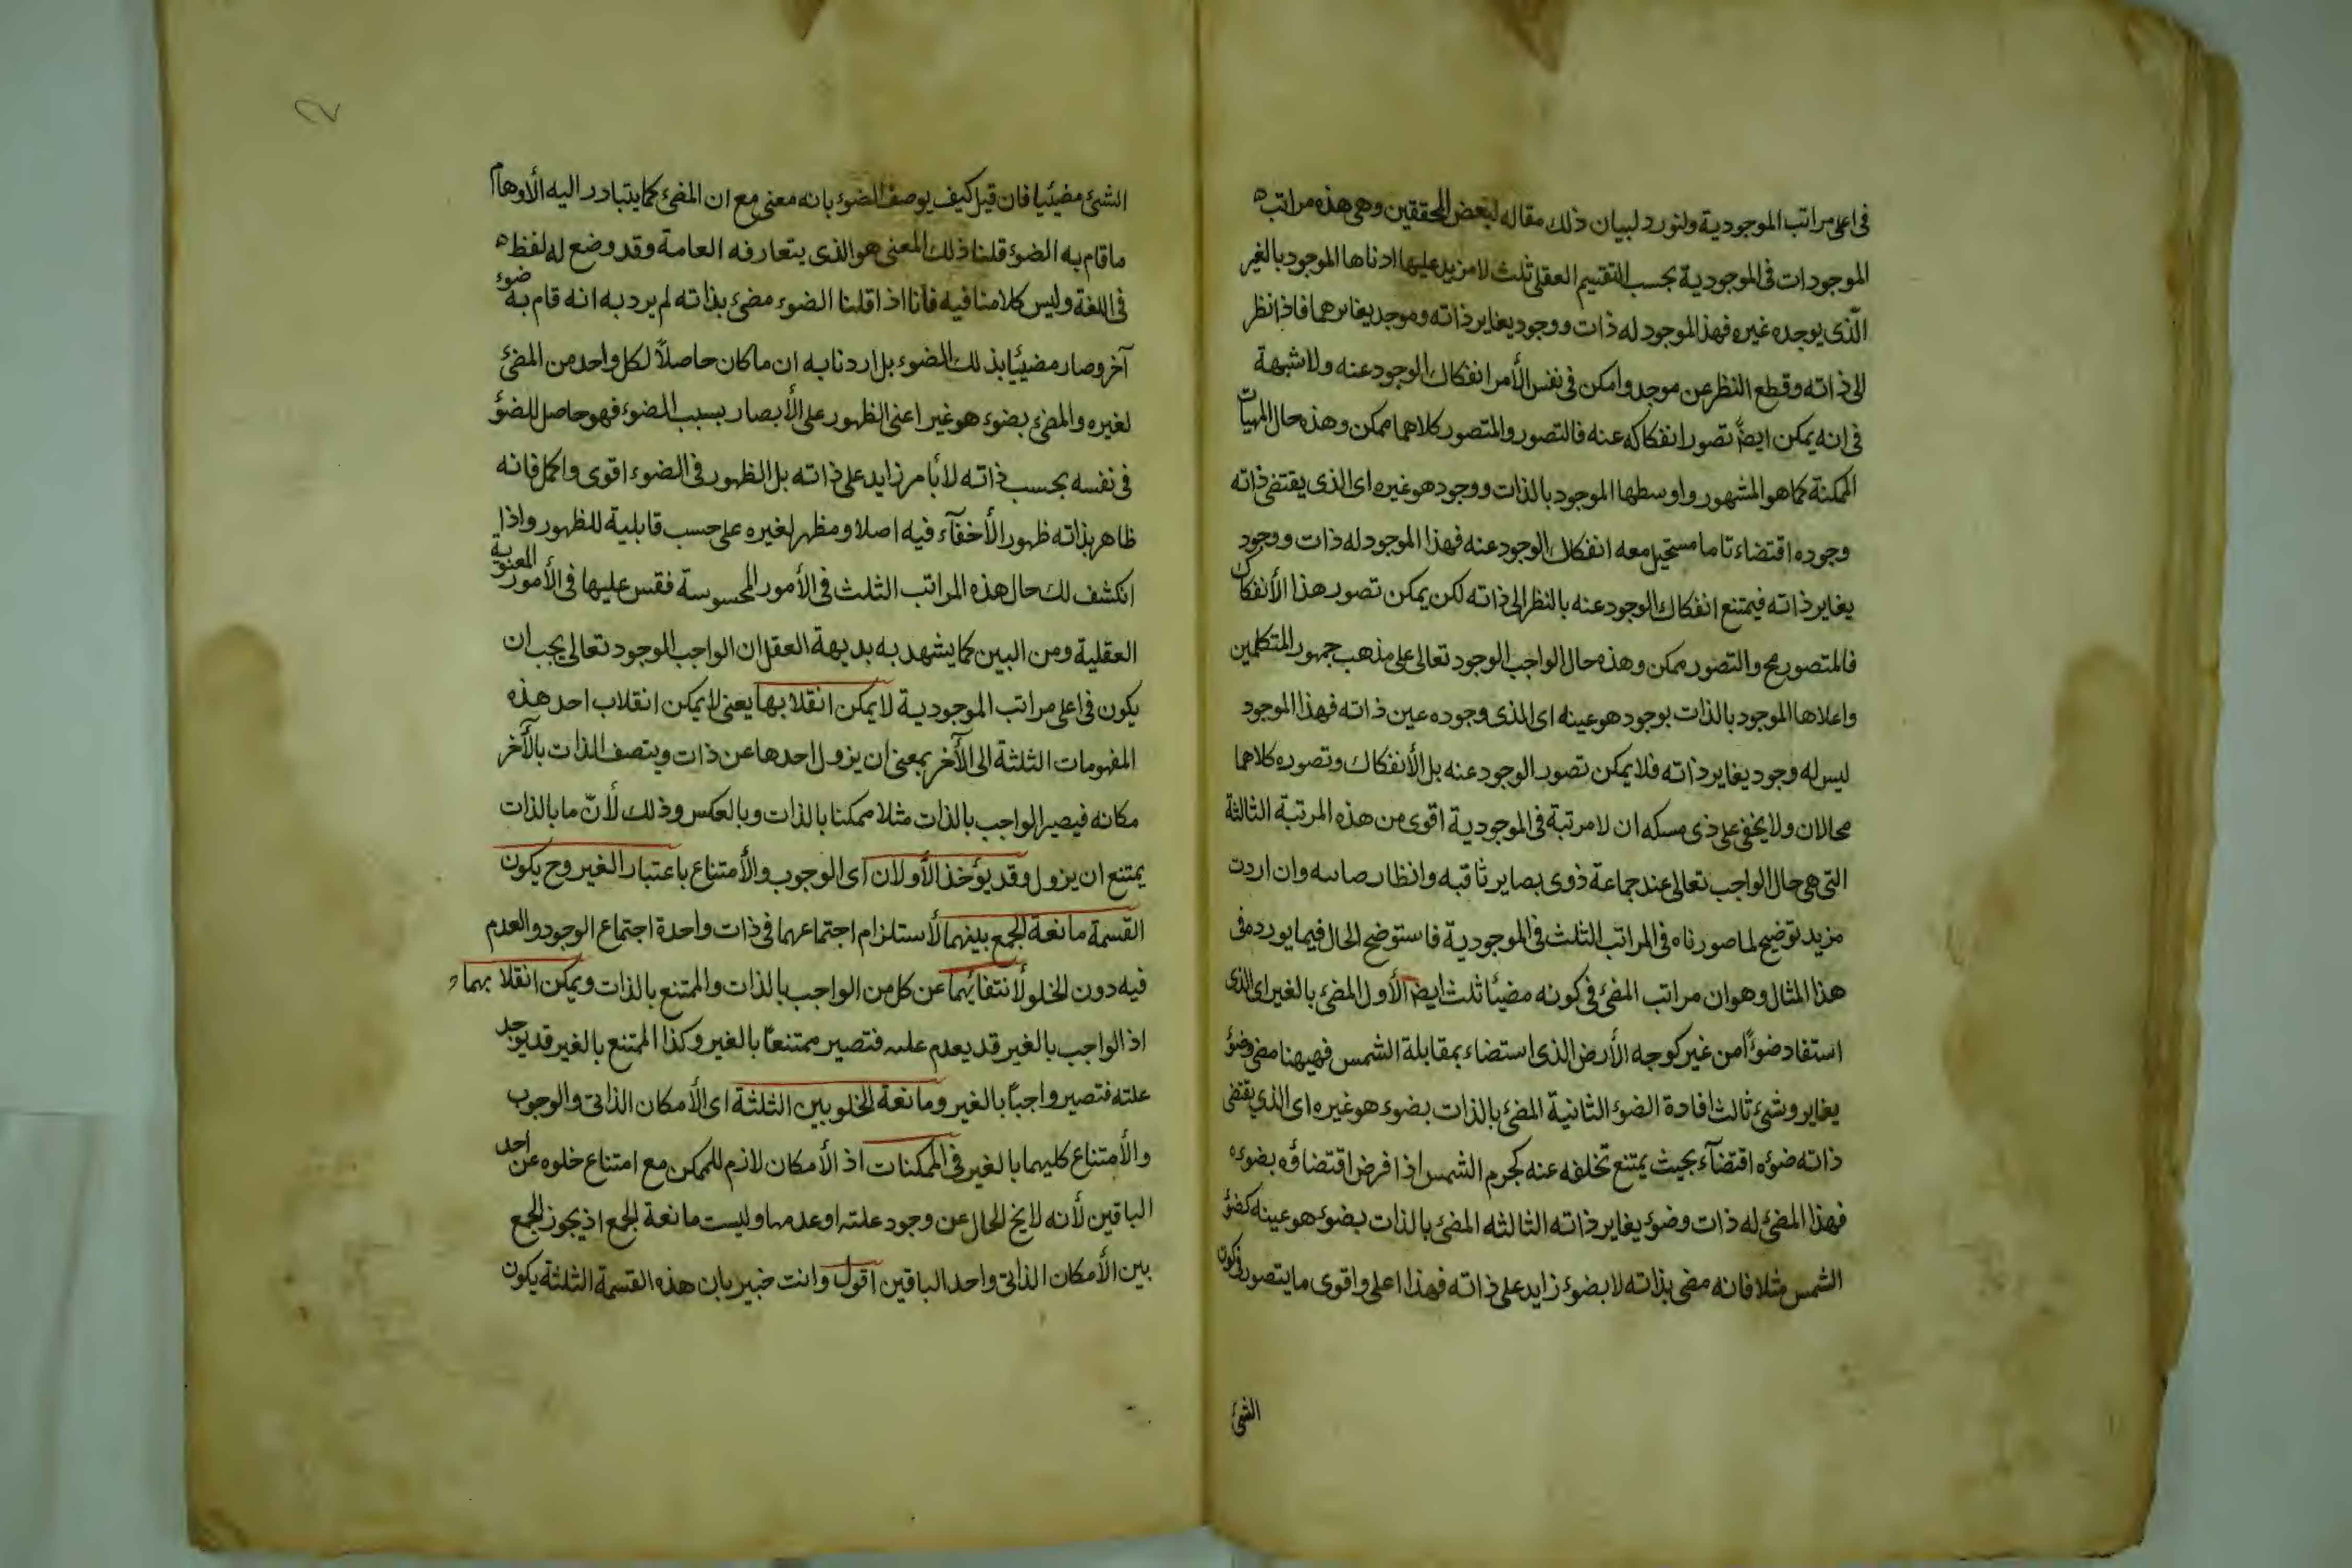 فى اعلى مراتب الموجودية ولنورد لبيان ذلك مقاله لبعض المحققين وهى هذه مراتب
الموجودات فى الموجودية بحسب التقسيم العقلى ثلث لا مزيد عليها ادناها الموجود بالغير
الّذى يوجده غيره فهذا الموجود له ذات ووجود يغاير ذاته وموجد يغايرهما فاذا نظر
الى ذاته وقطع النظر عن موجد وامكن فى نفس الأمر انفكاك الوجود عنه ولا شبهة
فى انه يمكن ايضاً تصور انفكاكه عنه فالتصور والمتصور كلاهما ممكن وهذه حال المهيات
الممكنة كما هو المشهور واوسطها الموجود بالذات ووجود هو غيره اى الذى يقتضى ذاته
وجوده اقتضاء تاما مستحيل معه انفكاك الوجود عنه فهذا الموجود له ذات ووجود
يغاير ذاته فيمتنع انفكاك الوجود عنه بالنظر الى ذاته لكن يمكن تصور هذا الأنفكاك
فالمتصور مح والتصور ممكن وهذه حال الواجب الوجود تعالى على مذهب جمهور المتكلمين
واعلاها الموجود بالذات بوجود هو عينه اى الذى وجوده عين ذاته فهذا الموجود
ليس له وجود يغاير ذاته فلا يمكن تصور الوجود عنه بل الأنفكاك وتصوره كلاهما
محالان ولا يخفى على ذى مسكه ان لا مرتبة فى الموجودية اقوى من هذه المرتبة الثالثة
التى هى حال الواجب تعالى عند جماعة ذوى بصاير ثاقبه وانظار صائبه وان اردت
مزيد توضيح لما صورناه فى المراتب الثلث فى الموجودية فاستوضح الحال فيما يورده فى
هذا المثال وهو ان مراتب المضئ فى كونه مضيئا ثلث ايضا الأول المضئ بالغير اى الذى
استفاد ضوءًا من غير كوجه الأرض الذى استضاء بمقابلة الشمس فههنا مضى وضؤ
يغاير وشئ ثالث افادة الضوء الثانية المضئ بالذات بضوء هو غيره اى الذى يقتضى
ذاته ضؤه اقتضآء بحيث يمتنع تخلفه عنه كجرم الشمس اذا فرض اقتضاؤه بضوءه
فهذا المضئ له ذات وضوء يغاير ذاته الثالثه المضئ بالذات بضوء هو عينه كضؤ
الشمس مثلا فانه مضى بذاته لا بضوء زايد على ذاته فهذا اعلى واقوى ما يتصور فى كون
الشئ
الشئ مضيئيا فان قيل كيف يوصف الضوء بانه معنى مع ان المضئ كما يتبادر اليه الأوهام
ما قام به الضوء قلنا ذلك المعنى هو الذى يتعارفه العامة وقد وضع له لفظ
فى اللغة وليس كلامنا فيه فانا اذا قلنا الضوء مضئ بذاته لم يرد به انه قام به ضوء
آخر وصار مضيئا بذلك الضوء بل اردنا به ان ما كان حاصلاً لكل واحد من المضئ
لغيره والمضئ بضوء هو غير اعنى الظهور على الأبصار بسبب الضوء فهو حاصل للضؤ
فى نفسه بحسب ذاته لا بأمر زايد على ذاته بل الظهور فى الضوء اقوى واكمل فانه
ظاهر بذاته ظهور الأخفآء فيه اصلا ومظهر لغيره على حسب قابلية للظهور واذا
انكشف لك حال هذه المراتب الثلث فى الأمور المحسوسة فقس عليها فى الأمور المعنوية
العقلية ومن البين كما يشهد به بديهة العقل ان الواجب الوجود تعالى يجب ان
يكون فى اعلى مراتب الموجودية لا يمكن انقلابها يعنى لا يمكن انقلاب احد هذه
المفهومات الثلثة الى الآخر بمعنى ان يزول احدها عن ذات ويتصف الذات بالآخر
مكانه فيصير الواجب بالذات مثلا ممكنا بالذات وبالعكس وذلك لأنّ ما بالذات
يمتنع ان يزول وقد يؤخذ الأولان اى الوجوب والأمتناع باعتبار الغير وح يكون
القسمة مانعة الجمع بينهما لأستلزام اجتماعهما فى ذات واحدة اجتماع الوجود والعدم
فيه دون الخلو لأنتفائهما عن كل من الواجب بالذات والممتنع بالذات ويمكن انقلابهما
اذ الواجب بالغير قد يعدم علته فتصير ممتنعاً بالغير وكذا الممتنع بالغير قد يوجد
علته فتصير واجباً بالغير ومانعة الخلو بين الثلثة اى الأمكان الذاتى والوجوب
والأمتناع كليهما بالغير فى الممكنات اذ الأمكان لازم للممكن مع امتناع خلوه عن احد
الباقين لأنه لا يخ الحال عن وجود علته او عدمها وليست مانعة الجمع اذ يجوز الجمع
بين الأمكان الذاتى واحد الباقين اقول وانت خبير بان هذه القسمة الثلثة يكون